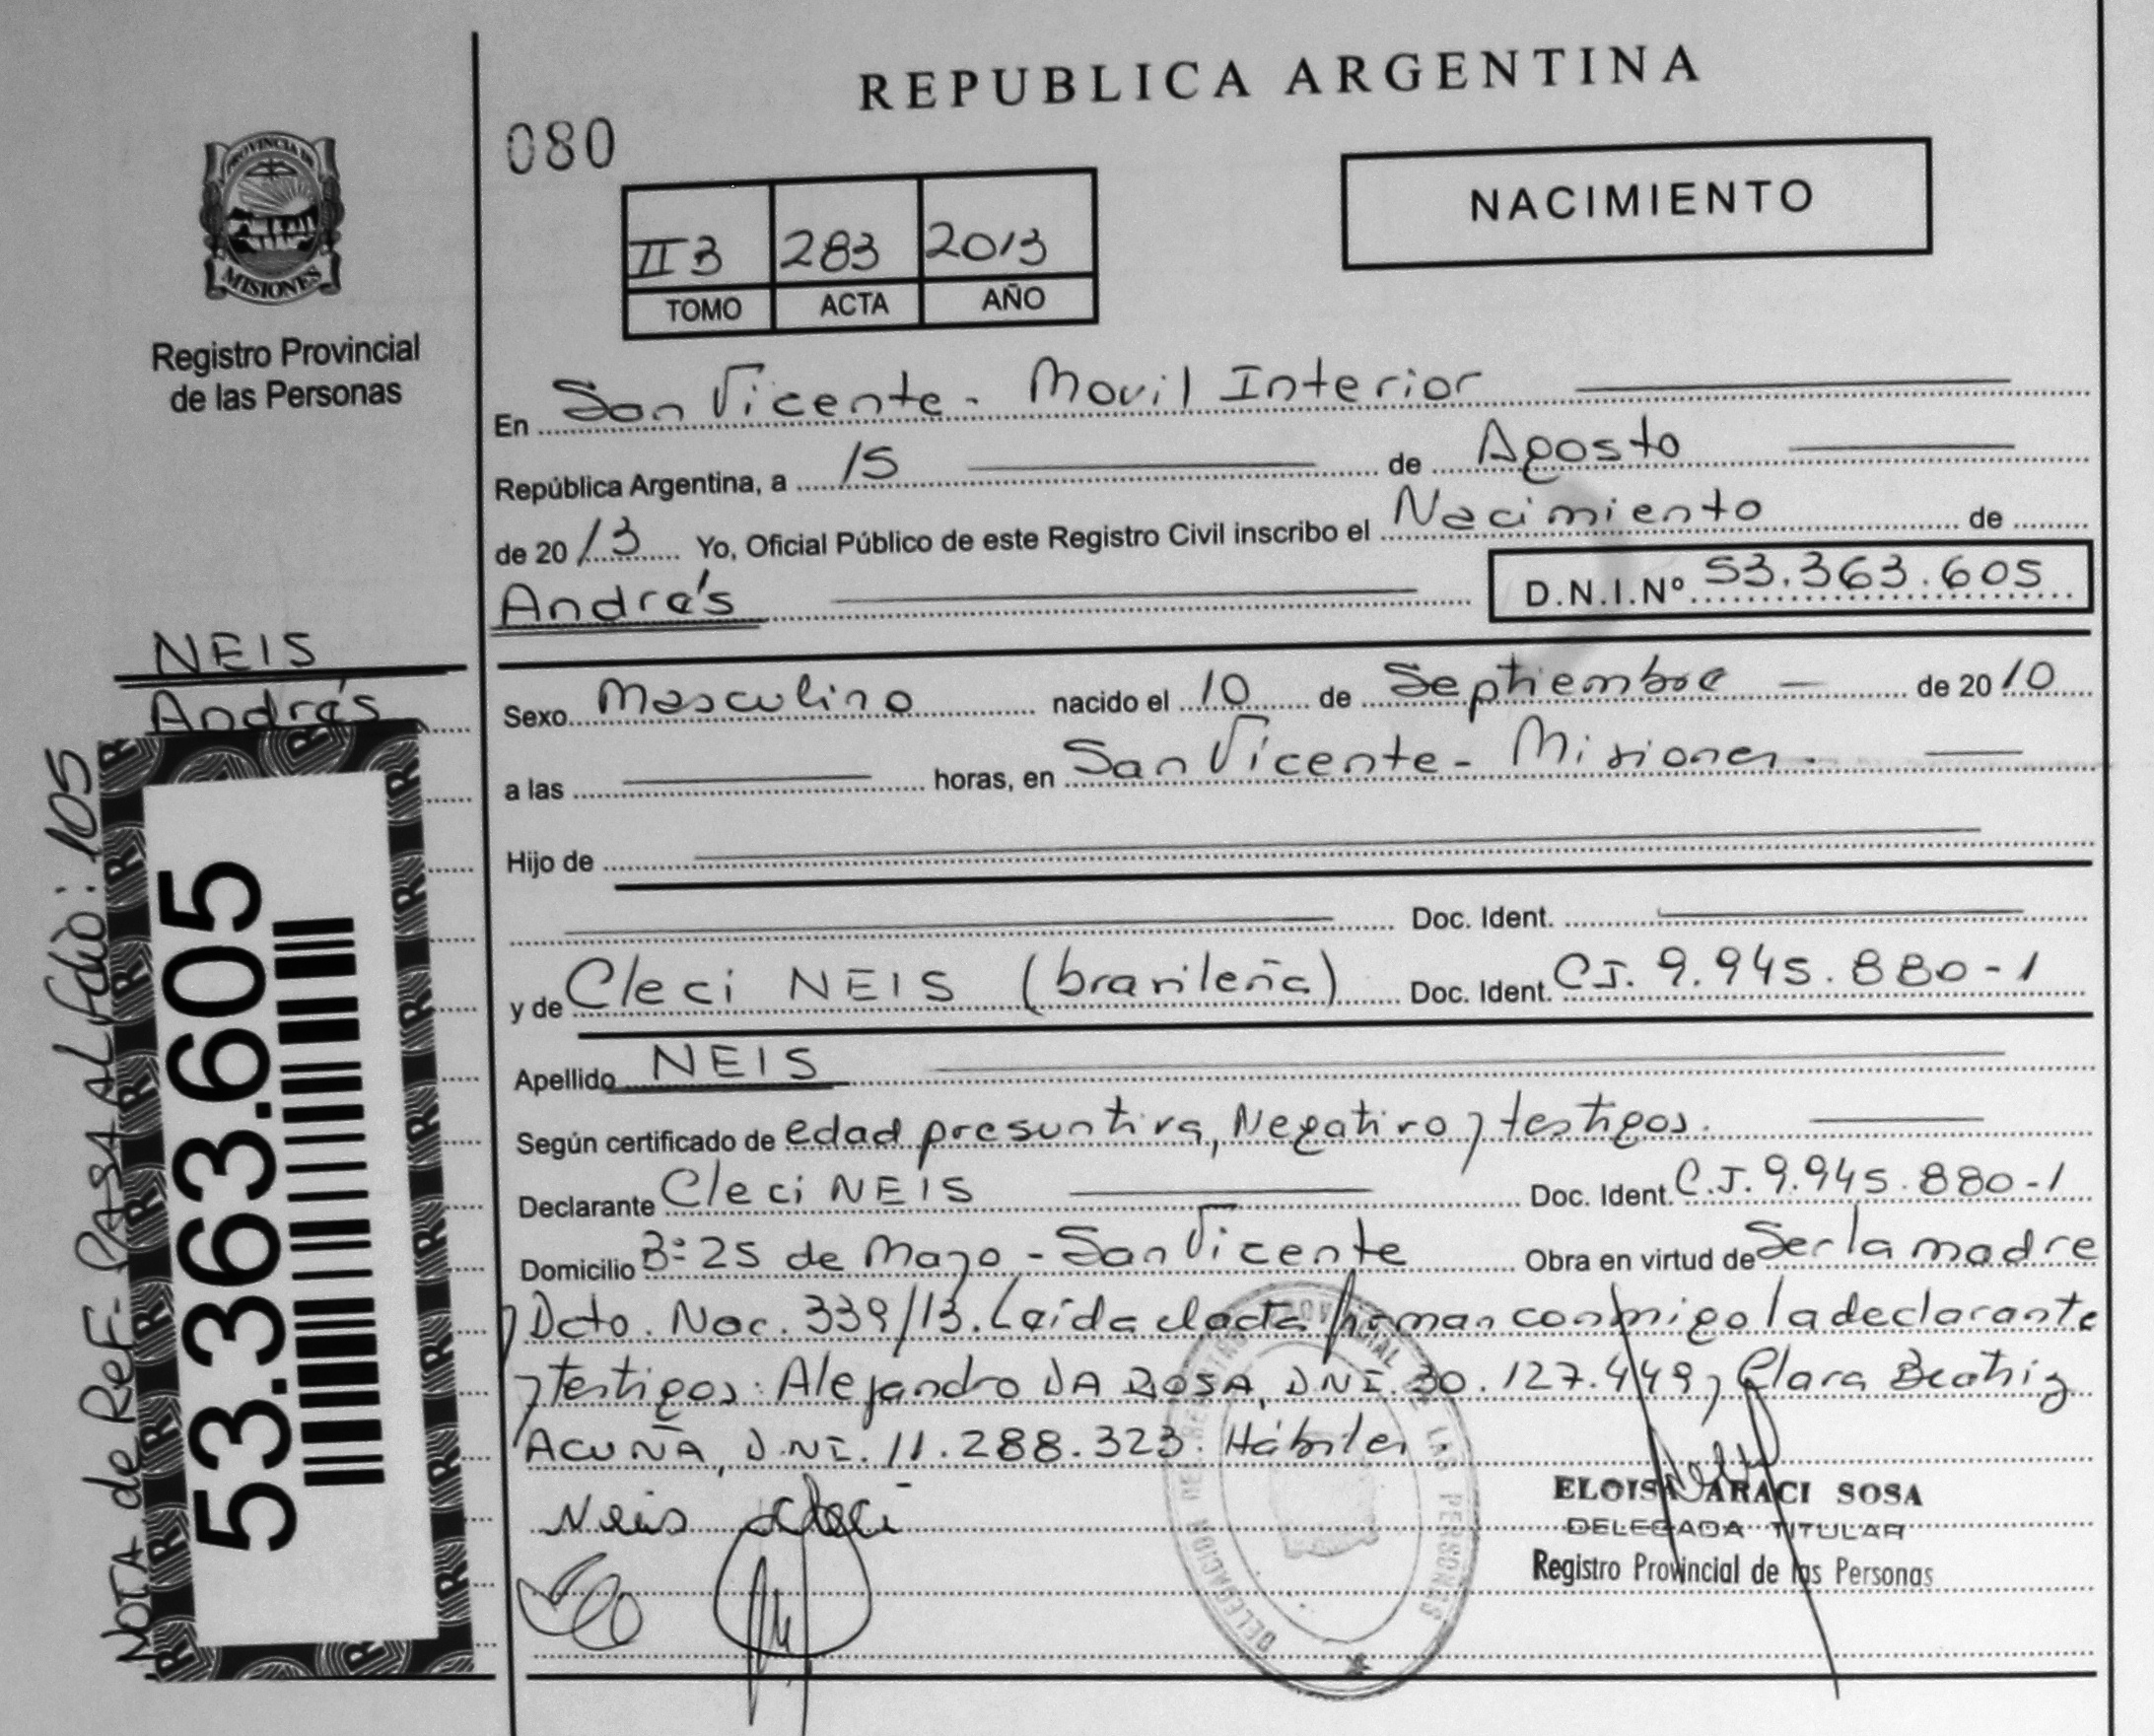 REPUBLICA ARGENTINA
080
NACIMIENTO
II 3 283 2013
TOMO ACTA AÑO
PROVINCIA DE
MISIONES
Registro Provincial
de las Personas
En San Vicente - Movil Interior
República Argentina, a 15 de Agosto
de 2013 Yo, Oficial Público de este Registro Civil inscribo el Nacimiento de
Andrés D.N.I.Nº 53.363.605
NEIS
Andrés
Sexo Masculino nacido el 10 de Septiembre de 2010
a las horas, en San Vicente - Misiones.
Hijo de
Doc. Ident.
y de Cleci NEIS (brasileña) Doc. Ident. C.I. 9.945.880-1
Apellido NEIS
Según certificado de edad presuntiva, Negativo y testigos.
Declarante Cleci NEIS Doc. Ident. C.I. 9.945.880-1
Domicilio Bº 25 de Mayo - San Vicente Obra en virtud de Ser la madre
y Dcto. Nac. 339/13. Leída el acta firman conmigo la declarante
y testigos: Alejandro DA ROSA, DNI. 30.127.449 y Clara Beatriz
ACUÑA, D.NI. 11.288.323. Hábiles.
Neis Cleci
ELOISA ARACI SOSA
DELEGADA TITULAR
Registro Provincial de las Personas
DELEGACION DEL REGISTRO PROVINCIAL DE LAS PERSONAS
53.363.605
NOTA de Ref. PASA AL folio: 105